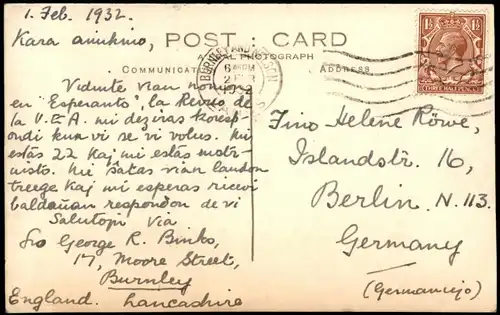 1. Feb. 1932.
Kara amikino,
POST CARD
PHOTOGRAPH
COMMUNICAT
ADDRESS
BURNLEY AND NELSON
1½ 1½
THREE HALFPENCE
Vidinte vian nomon
en "Esperanto", la Revuo de
la U.E.A. mi deziras koresp-
ondi kun vi se vi volus. Mi
estas 22 kaj mi estas instr-
uisto. Mi ŝatas vian landon
treege kaj mi esperas ricevi
baldaŭan respondon de vi
Salutojn Via
Sro George R. Binks,
17, Moore Street,
Burnley
England. Lancashire
Fino Helene Röwe,
Islandstr. 16,
Berlin N. 113.
Germany
(Germanujo)